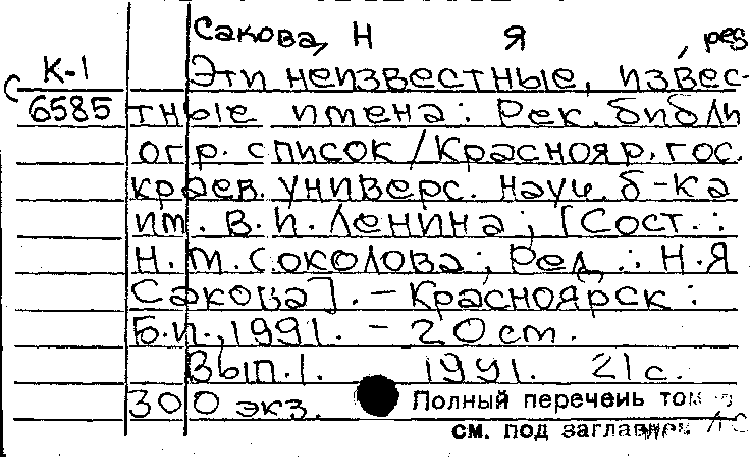 Сакова, Н Я , ред
К-1 Эти неизвестные, извес-
С 6585 тные имена: Рек. библи
огр. список / Краснояр. гос.
краев. универс. науч. б-ка
им. В.И. Ленина; [Сост.:
Н.М. Соколова; Ред.: Н.Я
Сакова]. - Красноярск:
Б.и., 1991. - 20 см.
Вып.1. 1991. 21 с.
300 экз. Полный перечень том
см. под заглавием